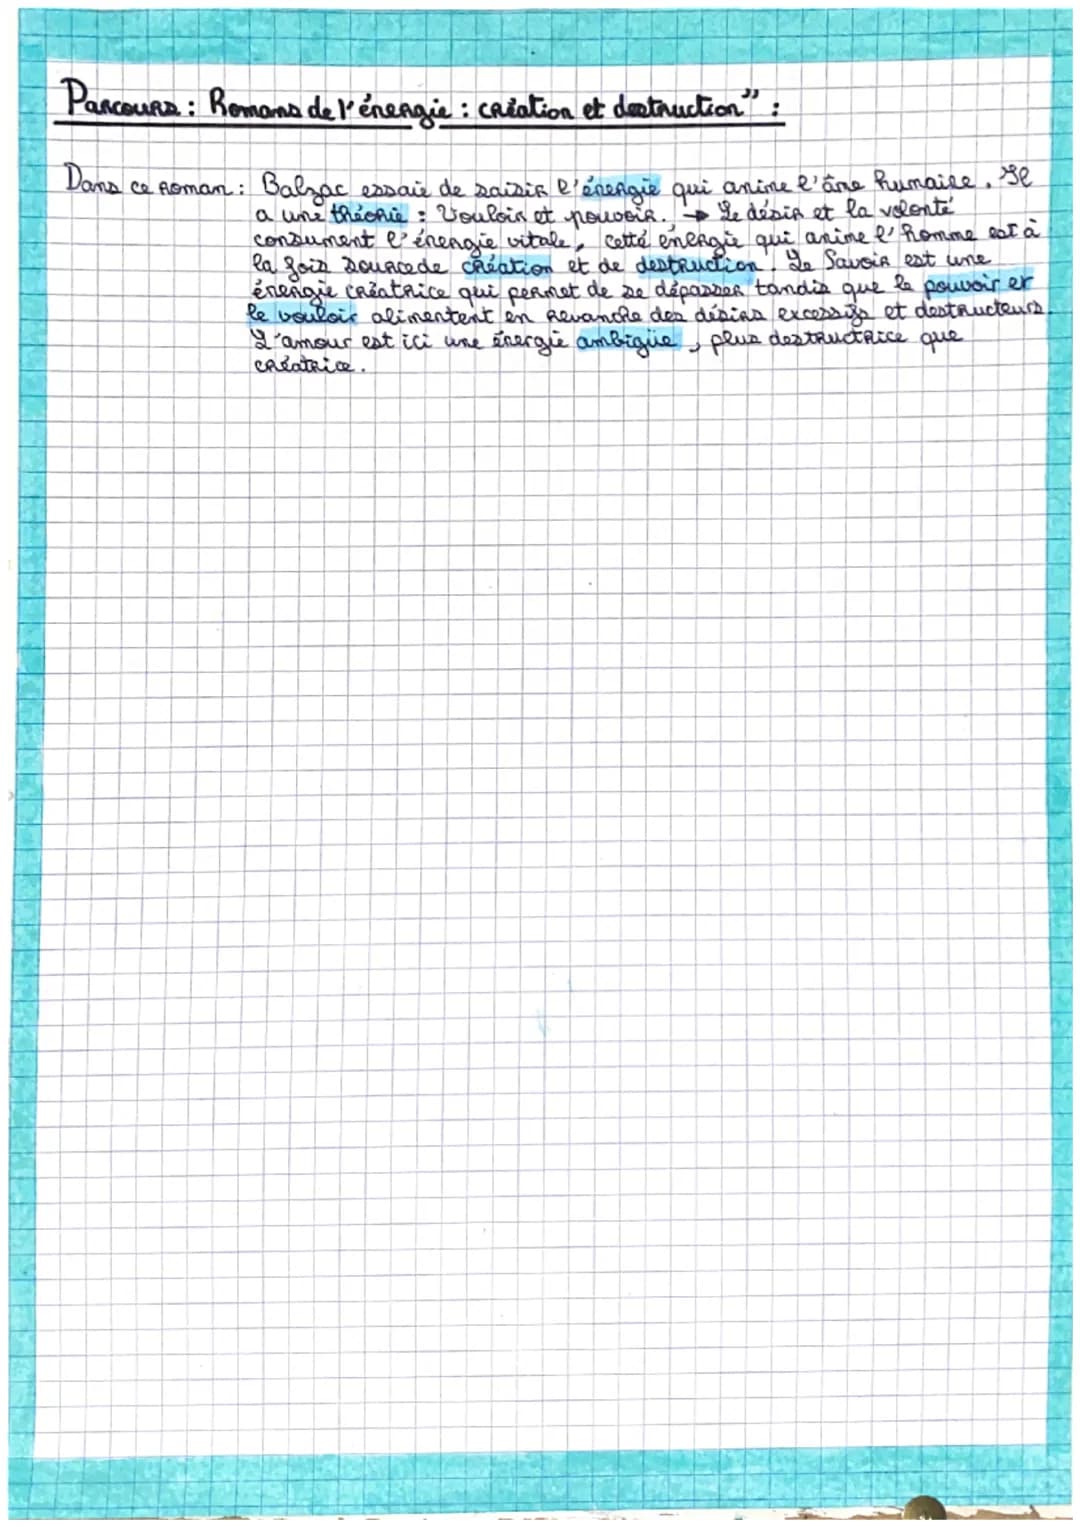 Parcours : Romans de l'énergie : création et destruction" :
Dans ce roman : Balzac essaie de saisir l'énergie qui anime l'âne humaine. Il
a une théorie : Vouloir et pouvoir. → Le désir et la volonté
consument l'énergie vitale, cette énergie qui anime l'homme est à
la fois source de création et de destruction. Le Savoir est une
énergie créatrice qui permet de se dépasser tandis que le pouvoir et
le vouloir alimentent en revanche des désirs excessifs et destructeurs.
L'amour est ici une énergie ambigüe, plus destructrice que
créatrice.